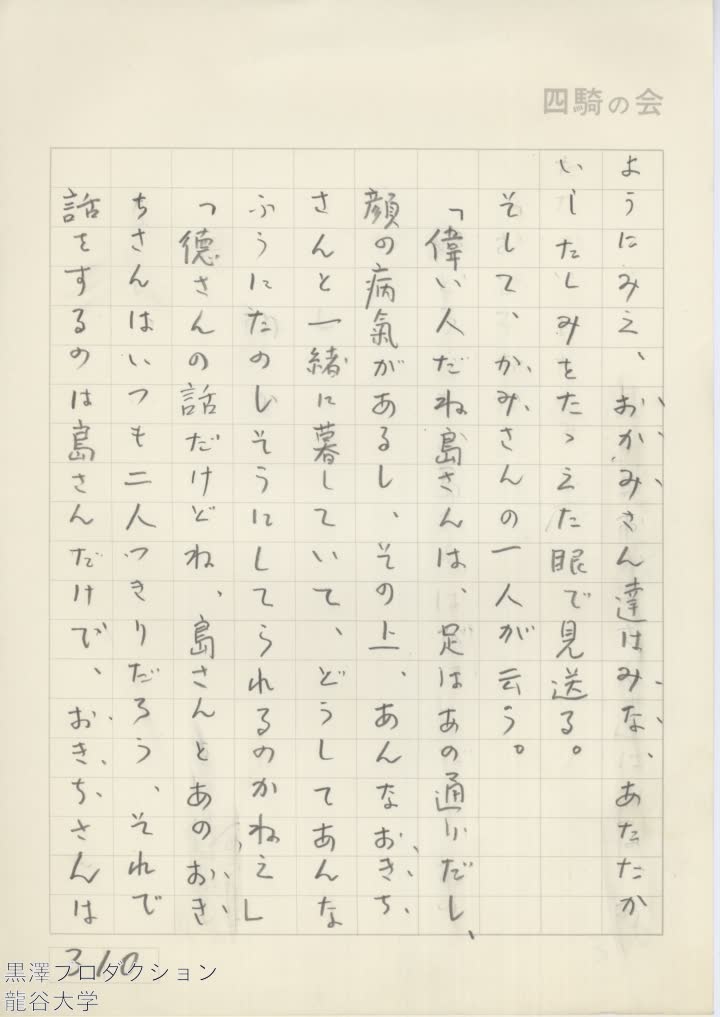 四騎の会
ようにみえ、おかみさん達はみな、あたたか
いしたしみをたゝえた眼で見送る。
そして、かみさんの一人が云う。
「偉い人だね島さんは、足はあの通りだし、
顔の病氣があるし、その上、あんなおきち
さんと一緒に暮していて、どうしてあんな
ふうにたのしそうにしてられるのかねえ」
「徳さんの話だけどね、島さんとあのおき
ちさんはいつも二人っきりだろう、それで
話をするのは島さんだけで、おきちさんは
310
黒澤プロダクション
龍谷大学